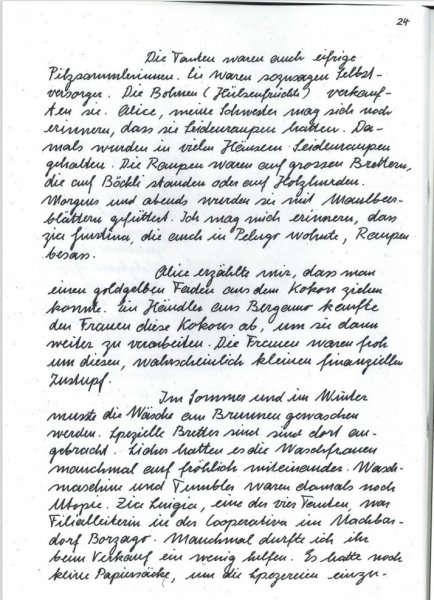 24
Die Tanten waren auch eifrige
Pilzsammlerinnen. Sie waren sozusagen Selbst-
versorger. Die Bohnen (Hülsenfrüchte) verkauf-
ten sie. Alice, meine Schwester mag sich noch
erinnern, dass sie Seidenraupen hatten. Da-
mals wurden in vielen Häusern Seidenraupen
gehalten. Die Raupen waren auf grossen Brettern,
die auf Böckli standen oder auf Holzhurden.
Morgens und abends wurden sie mit Maulbeer-
blättern gefüttert. Ich mag mich erinnern, dass
zia Giustina, die auch in Pelugo wohnte, Raupen
besass.
Alice erzählte mir, dass man
einen goldgelben Faden aus dem Kokon ziehen
konnte. Ein Händler aus Bergamo kaufte
den Frauen diese Kokons ab, um sie dann
weiter zu verarbeiten. Die Frauen waren froh
um diesen, wahrscheinlich kleinen finanziellen
Zustupf.
Im Sommer und im Winter
musste die Wäsche am Brunnen gewaschen
werden. Spezielle Bretter sind sind dort an-
gebracht. Sicher hatten es die Waschfrauen
manchmal auf fröhlich miteinander. Wasch-
maschine und Tumbler waren damals noch
Utopie. Zia Luigia, eine der vier Tanten, war
Filialleiterin in der Cooperativa im Nachbar-
dorf Borzago. Manchmal durfte ich ihr
beim Verkauf ein wenig helfen. Es hatte noch
keine Papiersäcke, um die Spezereien einzu-